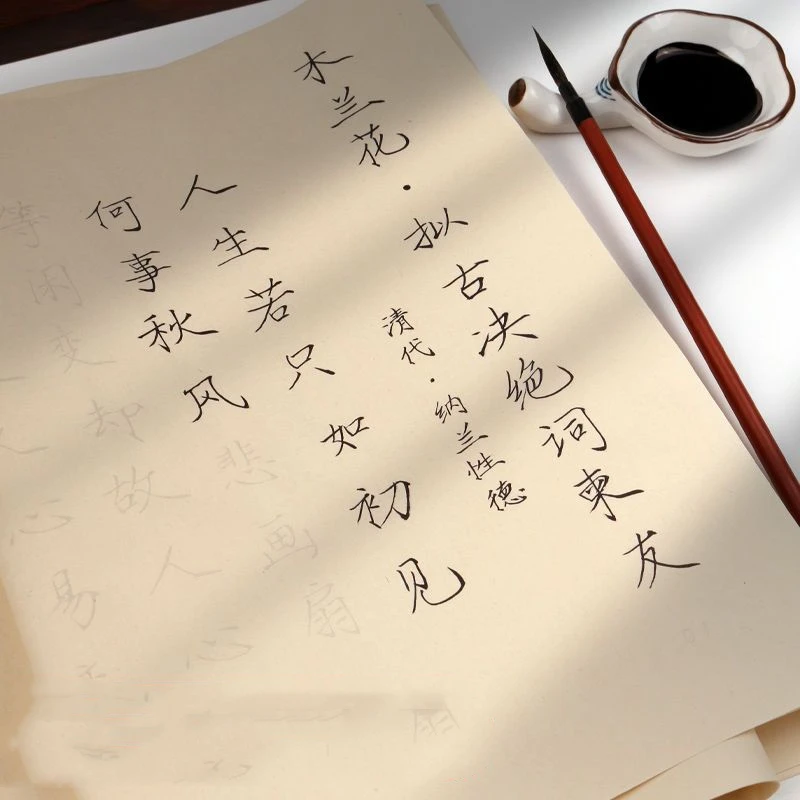 木兰花·拟古决绝词柬友
清代·纳兰性德
人生若只如初见
何事秋风悲画扇
等闲变却故人心
心易